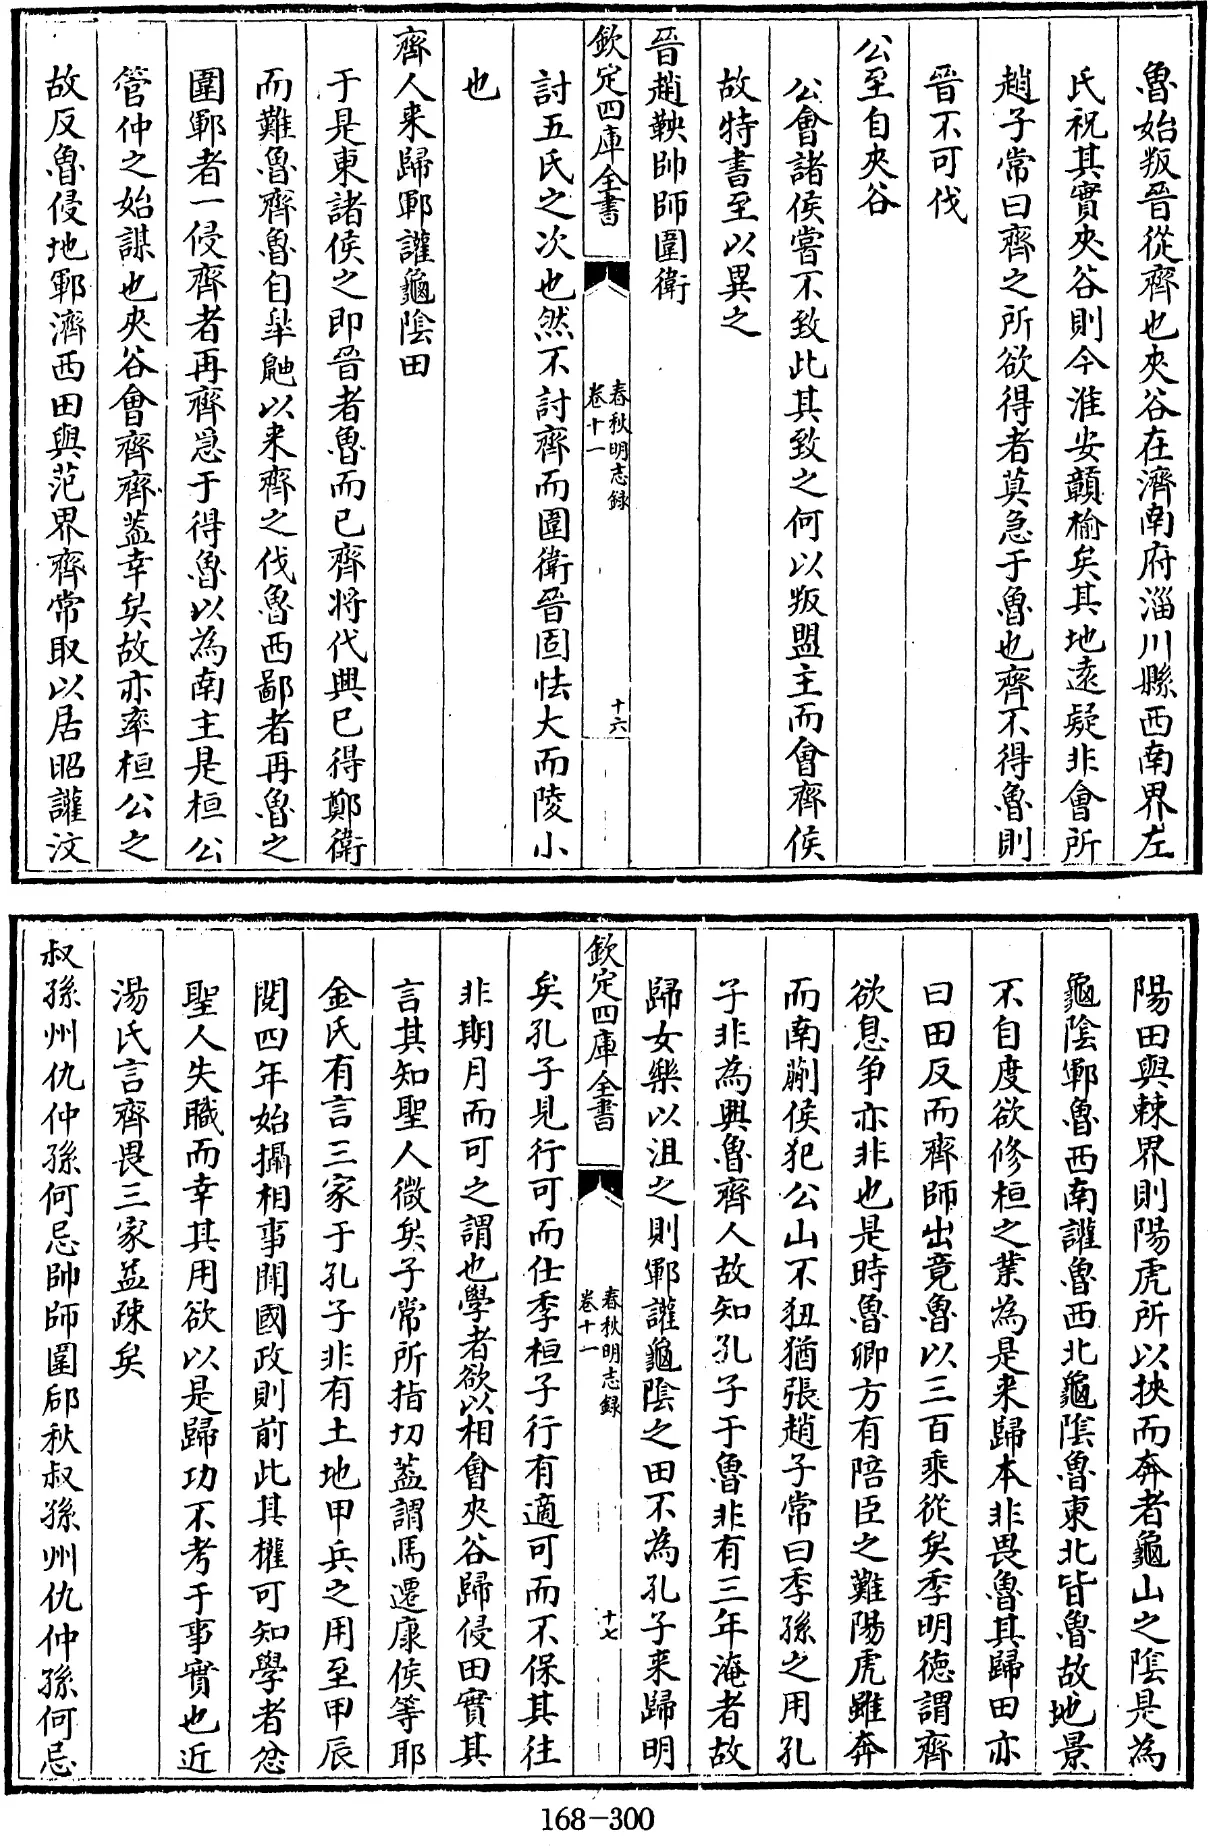 魯始叛晉從齊也夾谷在濟南府淄川縣西南界左
氏祝其實夾谷則今淮安贛榆矣其地遠疑非會所
趙子常曰齊之所欲得者莫急于魯也齊不得魯則
晉不可伐
公至自夾谷
公會諸侯嘗不致此其致之何以叛盟主而會齊侯
故特書至以異之
晉趙鞅帥師圍衛
欽定四庫全書
春秋明志録
卷十一
十六
討五氏之次也然不討齊而圍衛晉固怯大而陵小
也
齊人来歸鄆讙龜陰田
于是東諸侯之即晉者魯而已齊將代興已得鄭衛
而難魯齊魯自軰鼬以来齊之伐魯西鄙者再魯之
圍鄆者一侵齊者再齊急于得魯以為南主是桓公
管仲之始謀也夾谷會齊齊葢幸矣故亦率桓公之
故反魯侵地鄆濟西田與范界齊常取以居昭讙汶
陽田與棘界則陽虎所以挾而奔者龜山之陰是為
龜陰鄆魯西南讙魯西北龜陰魯東北皆魯故地景
不自度欲修桓之業為是来歸本非畏魯其歸田亦
曰田反而齊師出竟魯以三百乘從矣季明徳謂齊
欲息争亦非也是時魯卿方有陪臣之難陽虎雖奔
而南蒯侯犯公山不狃猶張趙子常曰季孫之用孔
子非為興魯齊人故知孔子于魯非有三年淹者故
歸女樂以沮之則鄆讙龜陰之田不為孔子来歸明
欽定四庫全書
春秋明志録
卷十一
十七
矣孔子見行可而仕季桓子行有適可而不保其往
非期月而可之謂也學者欲以相會夾谷歸侵田實其
言其知聖人微矣子常所指切葢謂馬遷康侯等耶
金氏有言三家于孔子非有土地甲兵之用至甲辰
閱四年始攝相事聞國政則前此其權可知學者忿
聖人失職而幸其用欲以是歸功不考于事實也近
湯氏言齊畏三家益疎矣
叔孫州仇仲孫何忌帥師圍郈秋叔孫州仇仲孫何忌
168-300